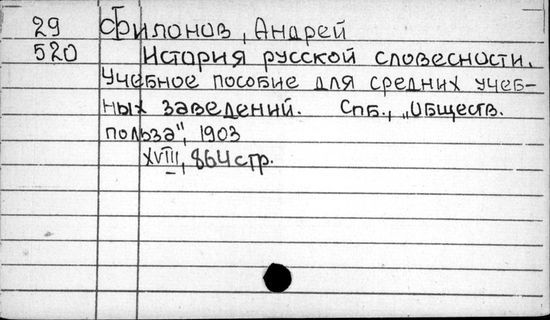 29 Филонов, Андрей
520 История русской словесности.
Учебное пособие для средних учеб-
ных заведений. Спб., „Обществ.
польза", 1903
XVIII, 864 стр.